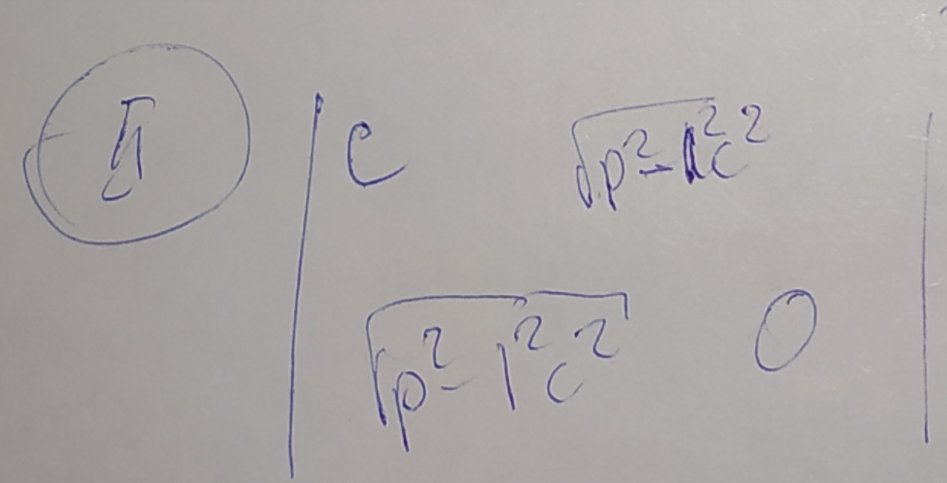 | C √p²-1²c² |
| √p²-1²c² 0 |